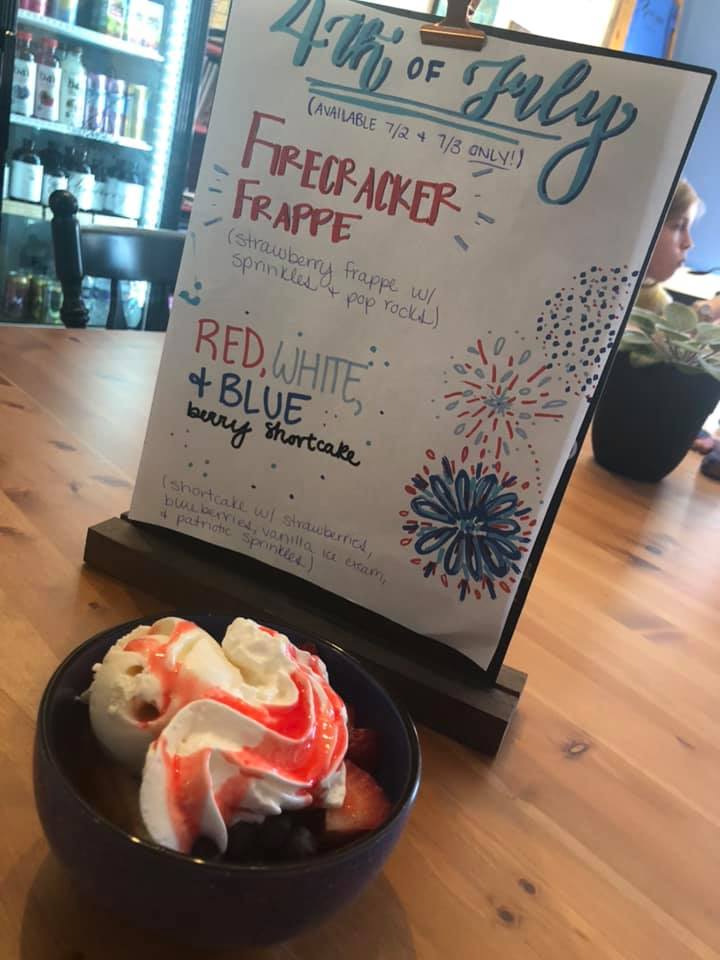 4th OF July
(AVAILABLE 7/2 & 7/3 ONLY!)
FIRECRACKER
FRAPPE
(strawberry frappe w/
sprinkles & pop rocks)
RED, WHITE,
& BLUE
berry shortcake
(shortcake w/ strawberries,
blueberries, vanilla ice cream,
& patriotic sprinkles)